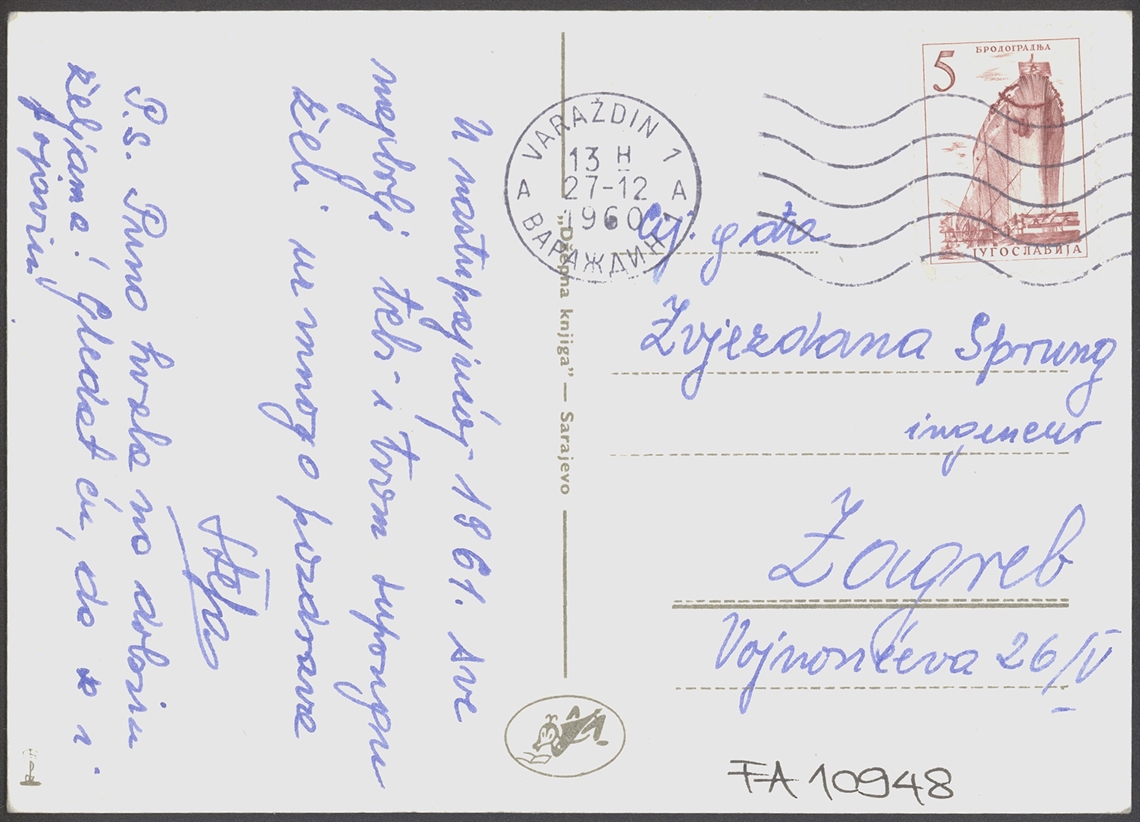 U nastupajućoj 1961. sve
najbolje tebi i tvom suprugu
želi uz mnogo pozdrava
Štefa
P.S. Puno hvala na dobrim
željama! Gledat ću, da se i
pojavim!
"Džepna knjiga" — Sarajevo
VARAŽDIN 1
13 H
27-12
1960
A A
ВАРАЖДИН 1
5
БРОДОГРАДЊА
ЈУГОСЛАВИЈА
Cij. gđa
Zvjezdana Sprung
ingeneur
Zagreb
Vojnovićeva 26/V
FA 10948